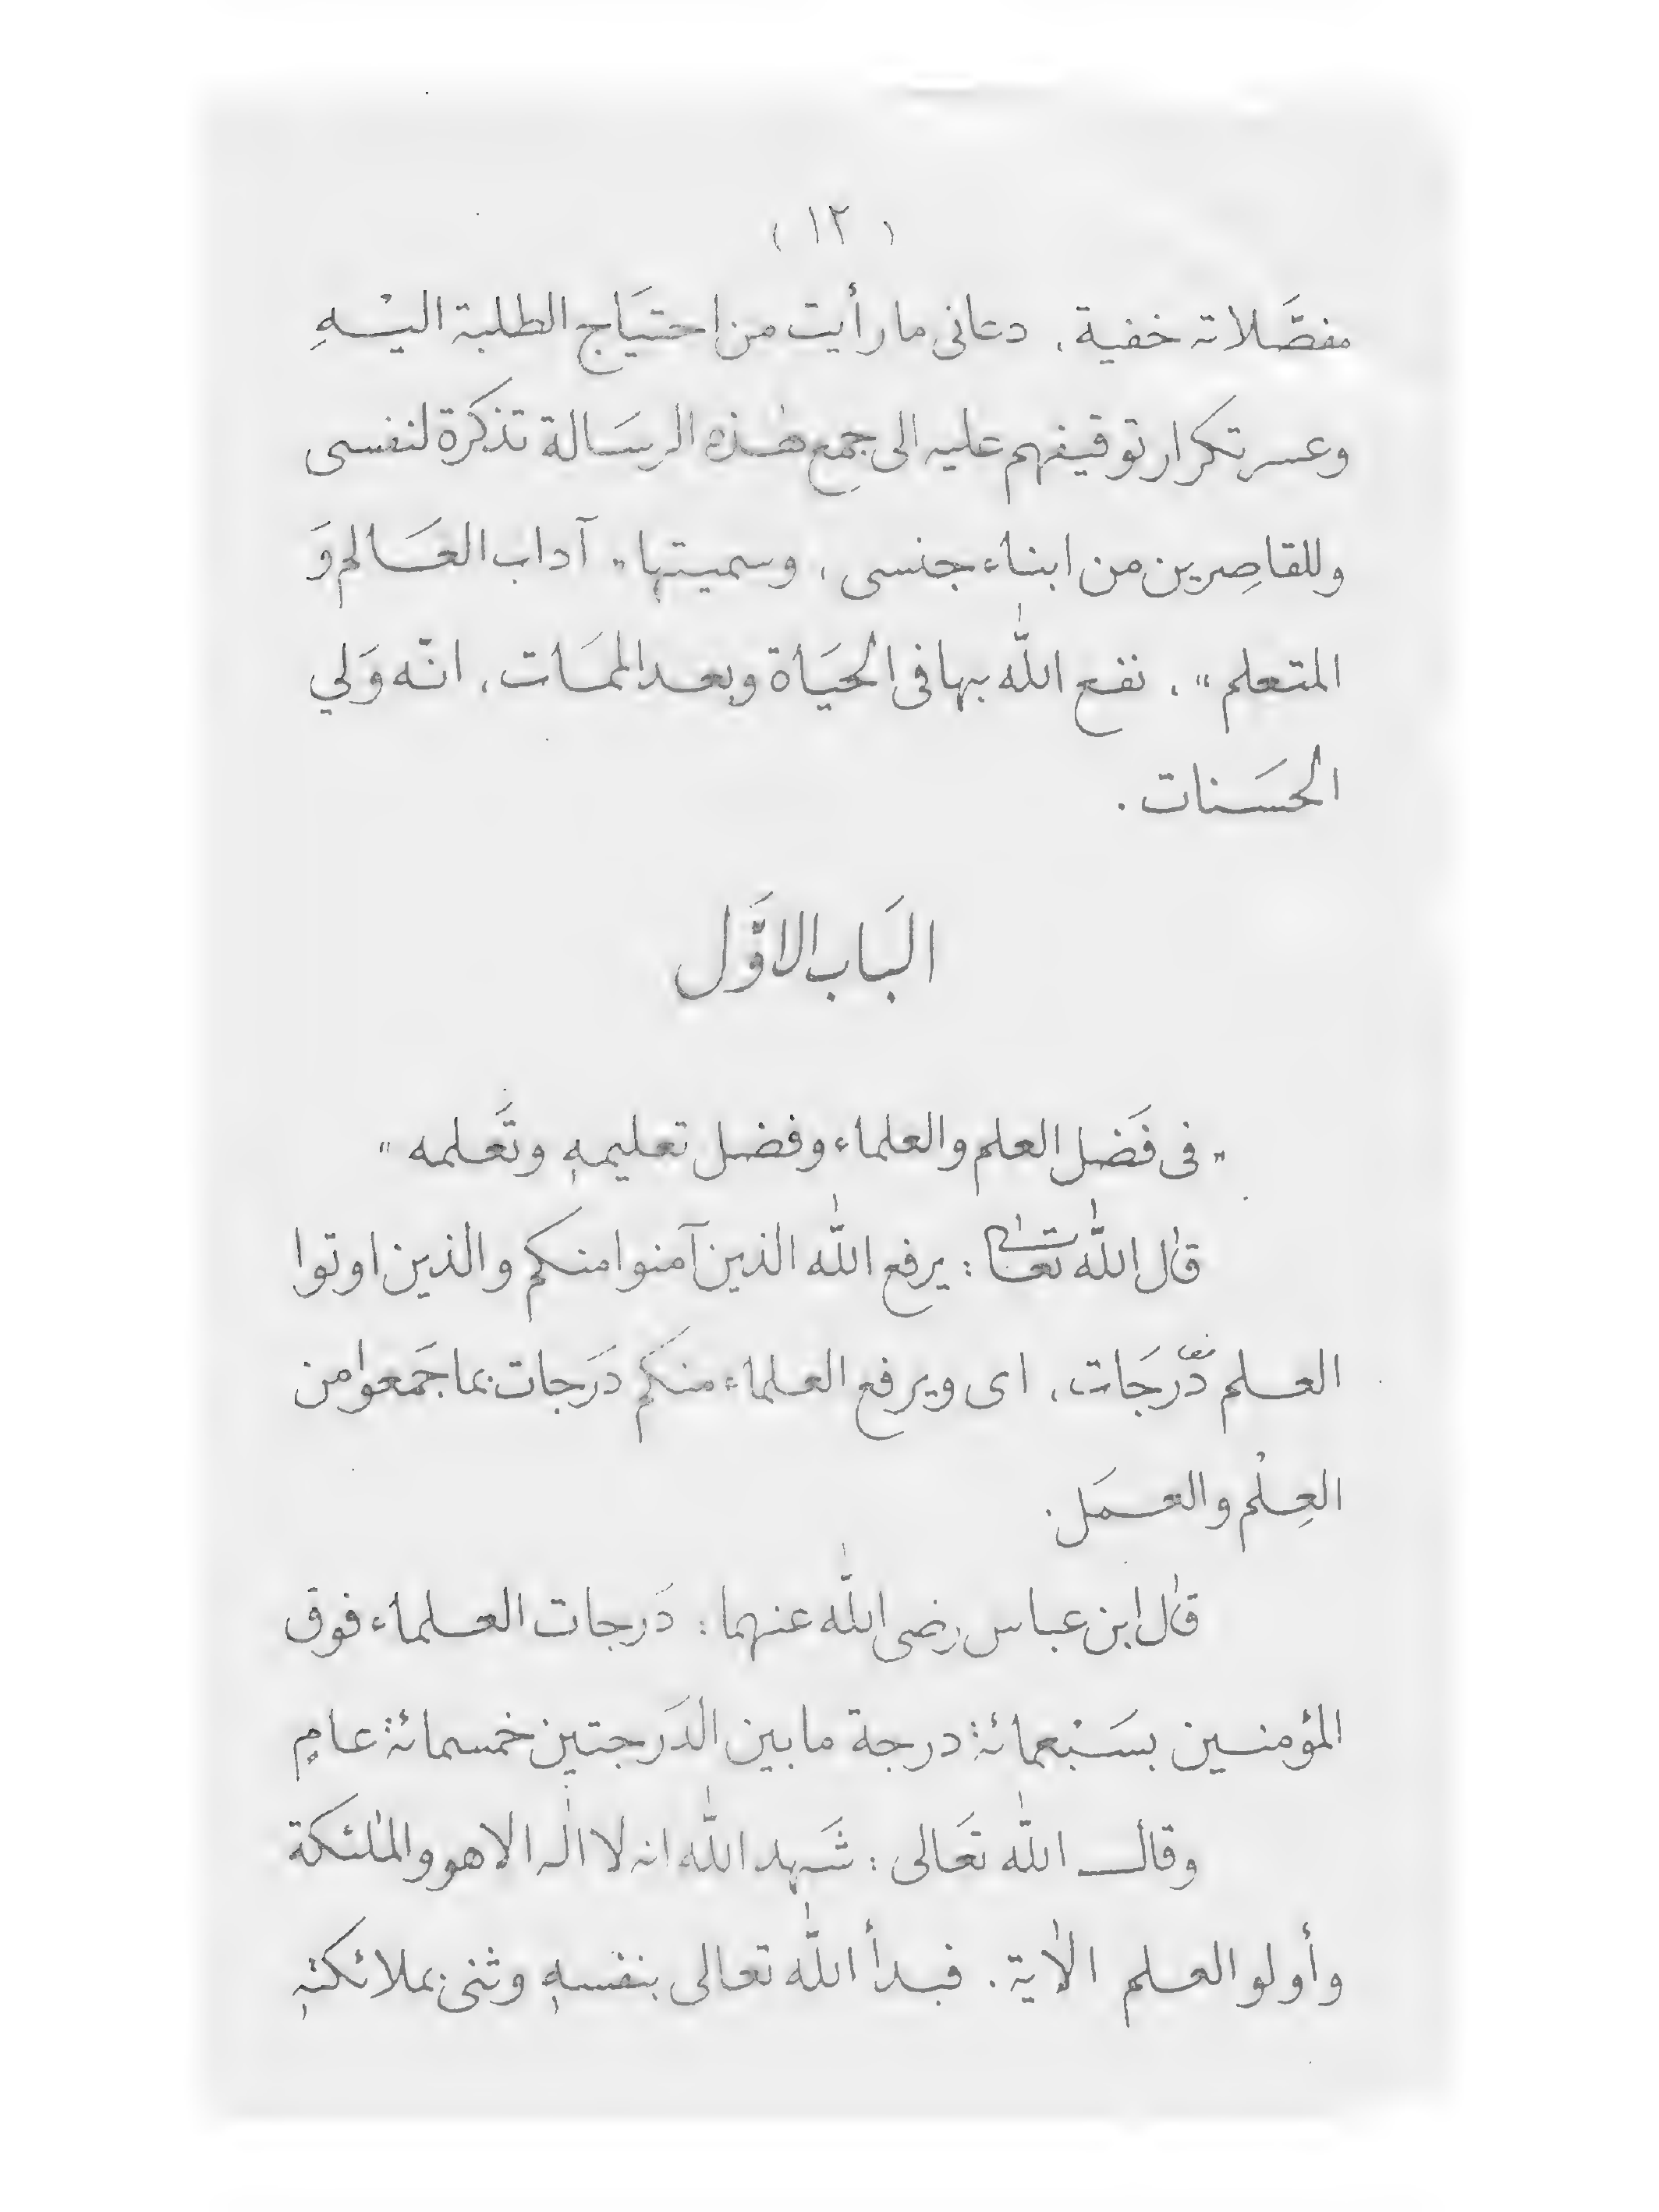 ( ١٢ )
مفصَّلاته خفية، دعانى ما رأيت من احتيَاج الطلبة اليْهِ
وعسر تكرار توقيفهم عليه الى جمِع هٰذه الرسَالة تذكرة لنفسى
وللقاصِرين من ابناء جنسى، وسميتها " آداب العَالم وَ
المتعلم "، نفع اللّٰه بها فى الحيَاة وبعد الممَات، انّه وَلي
الحسَنات.
البَاب الاوَّل
" فى فَضل العلم والعلماء وفضل تعليمهٖ وتَّعلمه "
قٰال اللّٰه تعٰالى : يرفع اللّٰه الذين آمنوا منكم والذين اوتوا
العلم درّجَات، اى ويرفع العلماء منكم دَرَجات بما جَمعوا من
العِلْم والعمَل.
قٰال ابن عباس رضى اللّٰه عنهما : دَرجات العلماء فوق
المؤمنين بسَبْعمائة درجة ما بين الدَرجتين خمسمائة عامٍ
وقٰال اللّٰه تعَالى : شَهد اللّٰه انه لا الٰه الا هو والملٰئكة
وأولو العلم الاٰية. فبدأ اللّٰه تعالى بنفسهٖ وثنى بملائكتهٖ